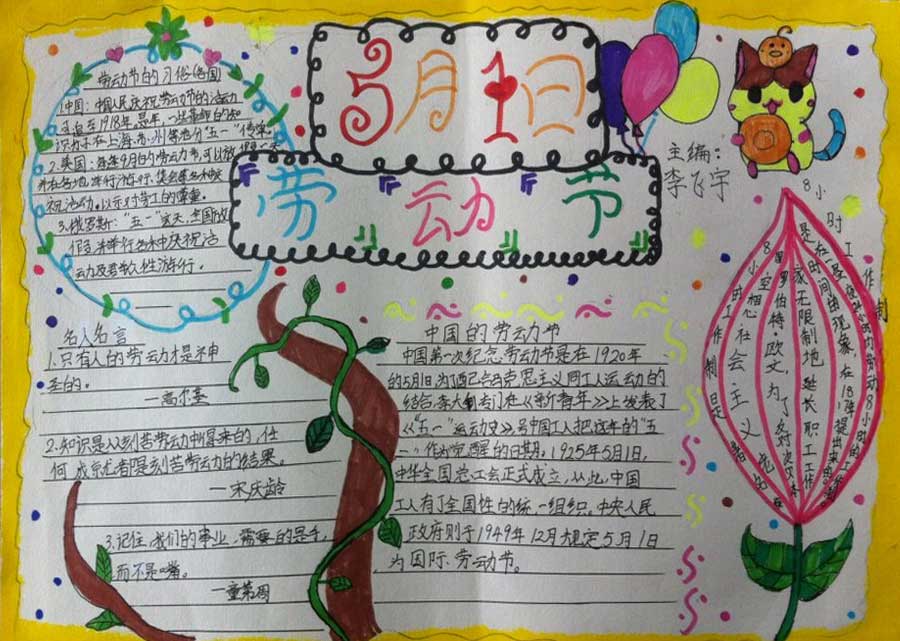 5月1日
劳动节
主编:
李飞宇
劳动节的习俗(各国)
1.中国:中国人民庆祝劳动节的活动
可追至1918年。是年,一些
在上海、苏州等地
2.美国:每年9月的劳动节,可以放假一天
祝活动,以示对劳工的尊重。
3.俄罗斯:“五一”这天,全国放
假,并举行各种庆祝活
动及
游行。
名人名言
1.只有人的劳动才是神
圣的。
—高尔基
2.知识是从刻苦劳动中得来的,任
何成就者是刻苦劳动的结果。
—宋庆龄
3.记住,我们的事业,需要的是手,
而不是嘴。
—童第周
中国的劳动节
中国第一次纪念劳动节是在1920年
的5月1日,为了
马克思主义同工人运动的
结合,李大
专门在《新青年》上发表了
《“五一”运动史》,号
中国工人把这年的“五
一”作为觉醒的日期。1925年5月1日,
中华全国总工会正式成立,从此,中国
工人有了全国性的统一组织。中央人民
政府则于1949年12月规定5月1日
为国际劳动节。
8小时工作制
8小时工作制是
空想社会主义者
罗伯特·欧文,为了反对资本
家无限制地延长职工工作
时间的现象,在18
提出来的